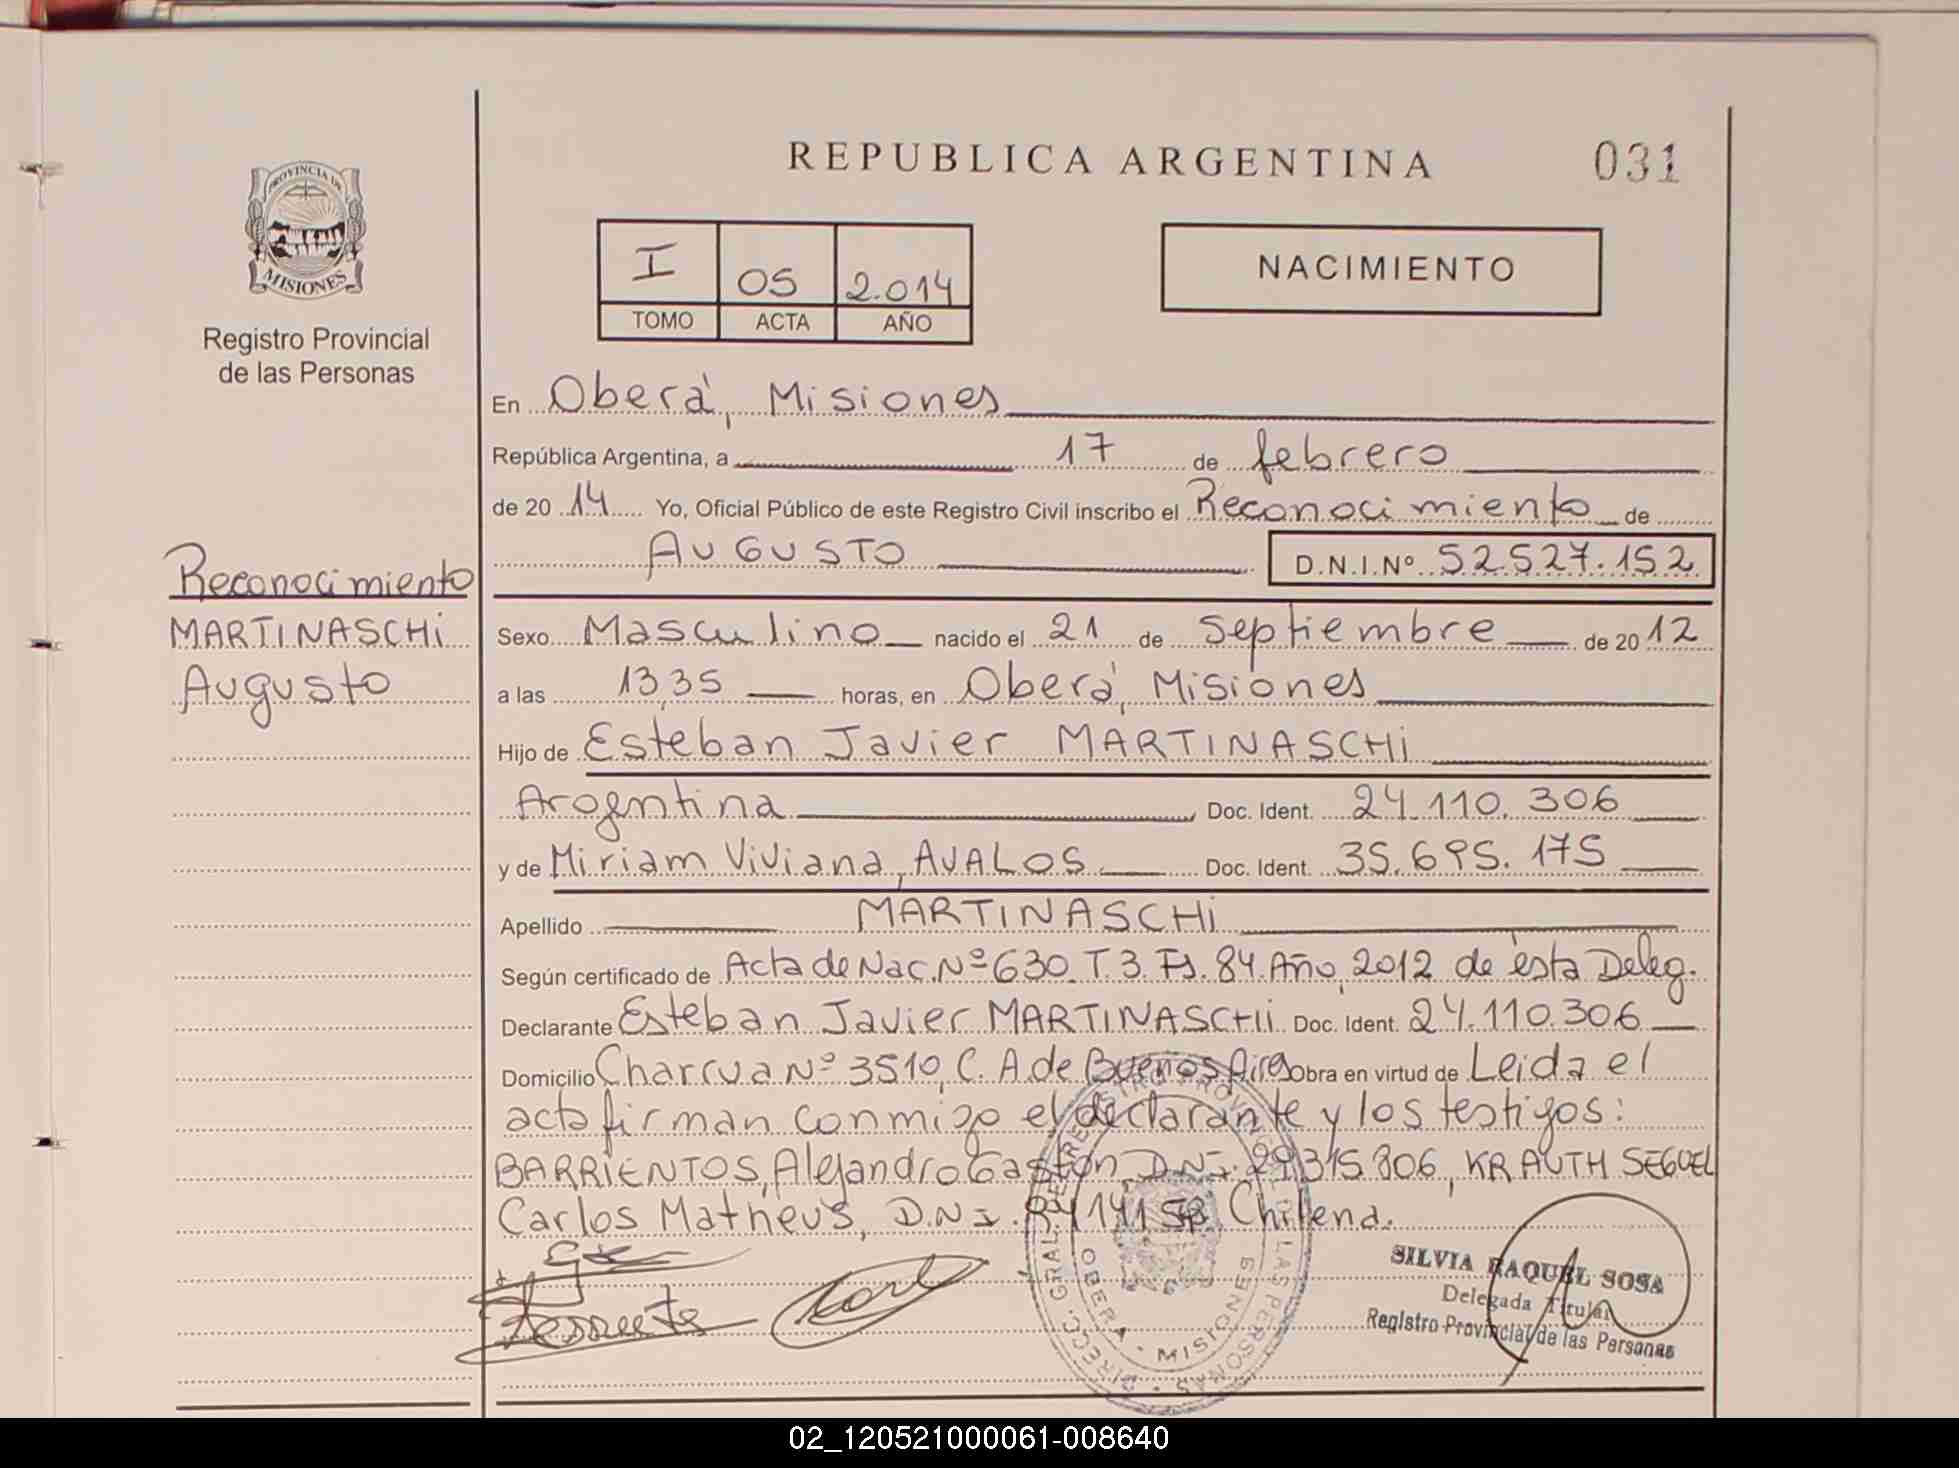 REPUBLICA ARGENTINA
031
PROVINCIA DE
MISIONES
Registro Provincial
de las Personas
I 05 2.014
TOMO ACTA AÑO
NACIMIENTO
En Oberá, Misiones
República Argentina, a 17 de febrero
de 2014 Yo, Oficial Público de este Registro Civil inscribo el Reconocimiento de
AUGUSTO D.N.I.Nº 52.527.152
Reconocimiento
MARTINASCHi
Augusto
Sexo Masculino nacido el 21 de Septiembre de 2012
a las 13,35 horas, en Oberá, Misiones
Hijo de Esteban Javier MARTINASCHi
Argentina Doc. Ident. 24.110.306
y de Miriam Viviana, AVALOS Doc. Ident. 35.695.175
Apellido MARTINASCHi
Según certificado de Acta de Nac. Nº 630 T. 3. Fs. 84 Año, 2012 de ésta Deleg.
Declarante Esteban Javier MARTINASCHi Doc. Ident. 24.110.306
Domicilio Charrua Nº 3510, C. A. de Buenos Aires Obra en virtud de Leida el
acta firman conmigo el declarante y los testigos:
BARRIENTOS, Alejandro Gastón, D.N.I. 29.315.806, KRAUTH SEGUEL
Carlos Matheus, D.N.I. Chilena.
DIRECC. GRAL. DE REGISTRO PROVINCIAL DE LAS PERSONAS
OBERA - MISIONES
SILVIA RAQUEL SOSA
Delegada Titular
Registro Provincial de las Personas
02_120521000061-008640